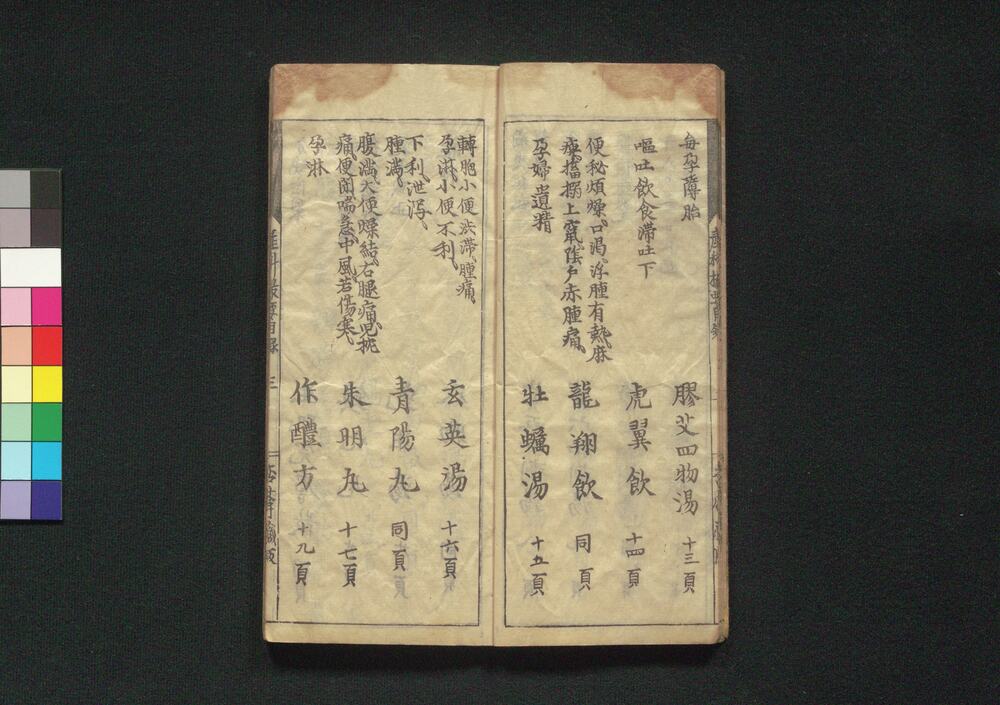 每孕薄胎
膠艾四物湯 十三頁
嘔吐飲食滯吐下
虎翼飲 十四頁
便秘煩燥口渴浮腫有熱麻
痺搐搦上氣陰戶赤腫痛
龍翔飲 同頁
孕婦遺精
牡蠣湯 十五頁
轉胞小便澁滯腫痛
孕淋小便不利
玄英湯 十六頁
下利泄瀉
腫滿
青陽丸 同頁
腹滿大便燥結右腿痛兒挑
痛便閉喘急中風若傷寒
朱明丸 十七頁
孕淋
作醴方 十九頁
產科 目錄 三